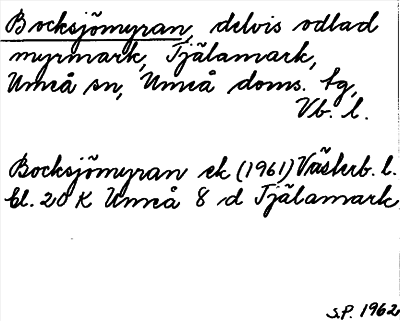 Bocksjömyran, delvis odlad
myrmark, Tjälamark,
Umeå sn, Umeå doms. tg,
Vb. l.
Bocksjömyran ek (1961) Västerb. l.
bl. 20 K Umeå 8 d Tjälamark
S.P. 1962